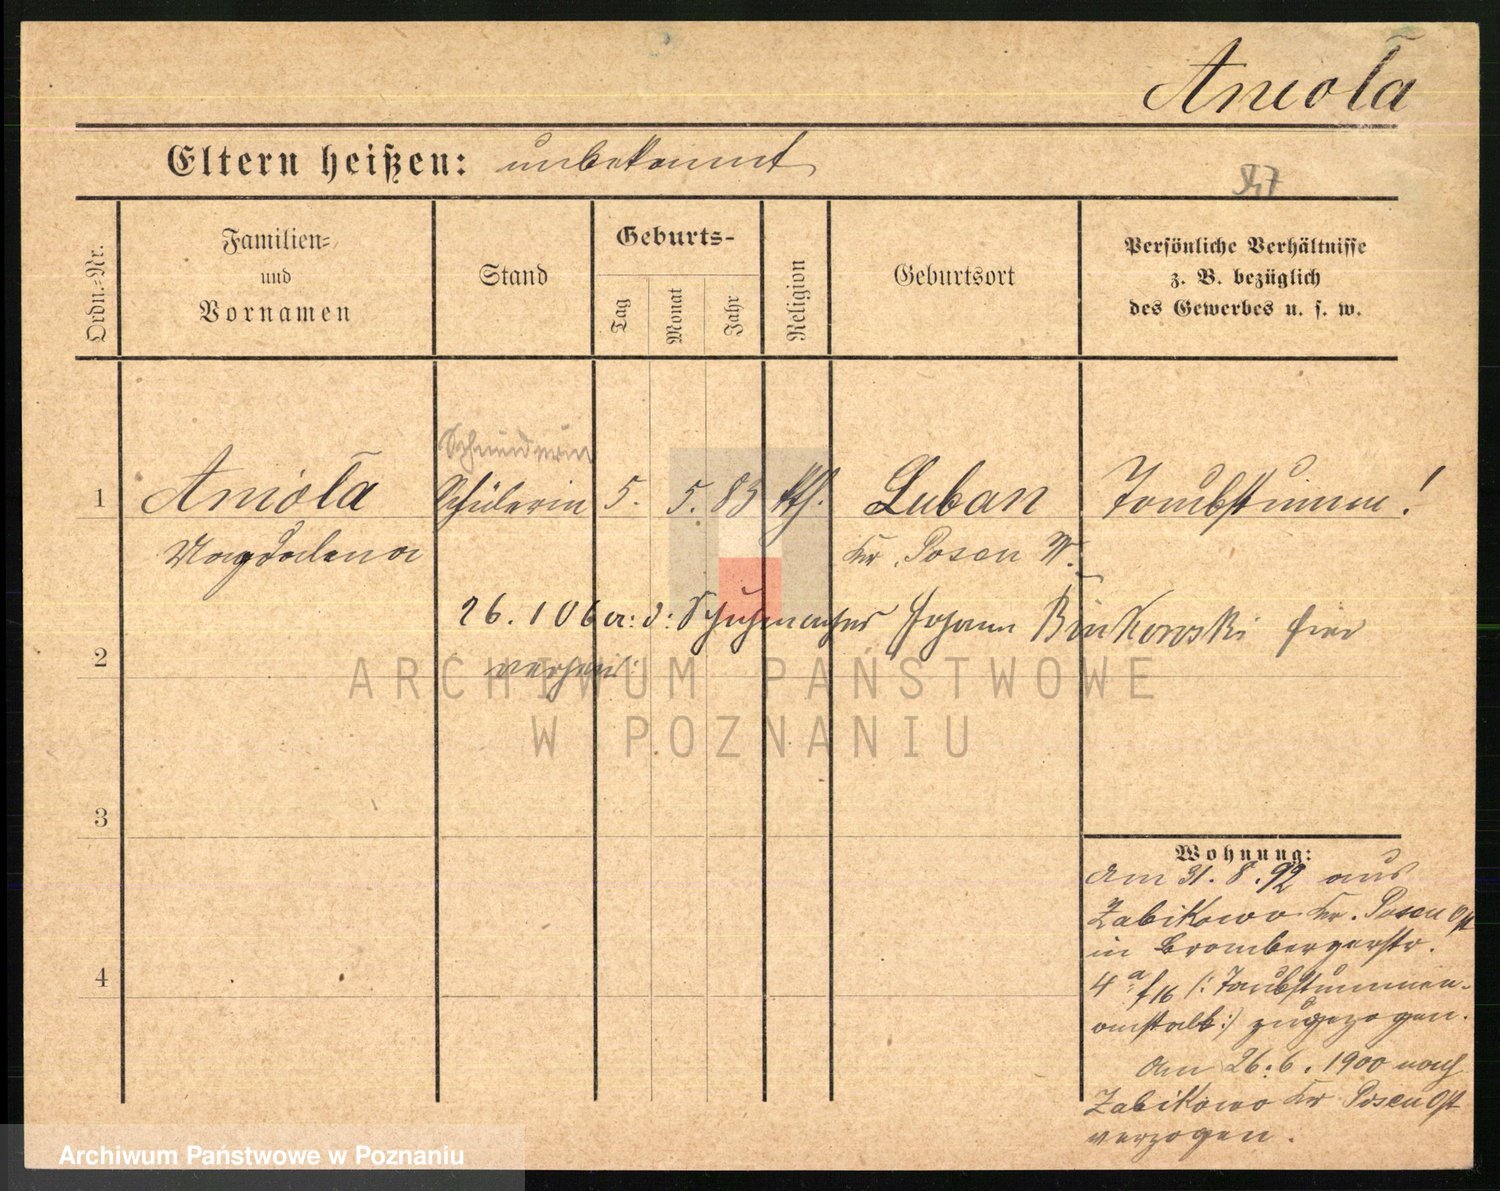 Anioła
Eltern heißen: unbekannt
Ordn.-Nr.
Familien-
und
Vornamen
Stand
Geburts-
Tag
Monat
Jahr
Religion
Geburtsort
Persönliche Verhältnisse
z. B. bezüglich
des Gewerbes u. s. w.
Schneiderin
1 Anioła Schülerin 5. 5. 83 kth. Luban Taubstumm!
Magdalena Kr. Posen W.
26. 1 06 a: d: Schuhmacher Johann Binkowski hier
2
verheir:
ARCHIWUM PAŃSTWOWE
W POZNANIU
3
Wohnung:
Am 31. 8. 92 aus
Zabikowo Kr. Posen Ost
in Brombergerstr.
4
4a. f16 (: Taubstummen-
anstalt :) zugezogen.
Am 26. 6. 1900 nach
Zabikowo Kr Posen Ost
verzogen.
Archiwum Państwowe w Poznaniu